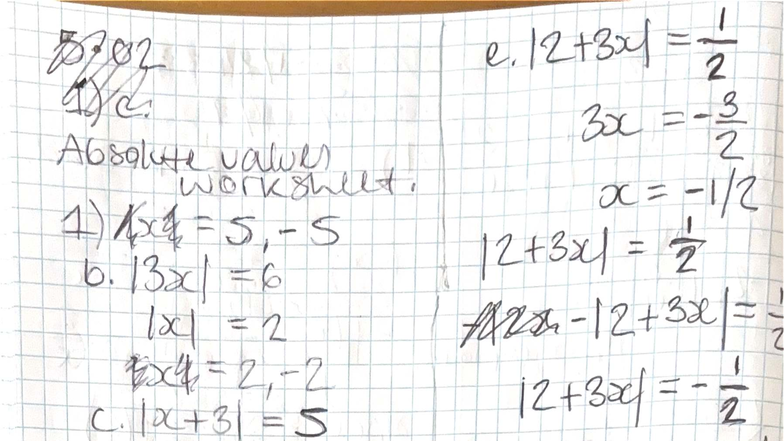 Absolute values
worksheet.
1) x = 5, -5
b. |3x| = 6
|x| = 2
x = 2, -2
c. |x+3| = 5
e. |2+3x| = 1/2
3x = -3/2
x = -1/2
|2+3x| = 1/2
-|2+3x| = 1/2
|2+3x| = -1/2